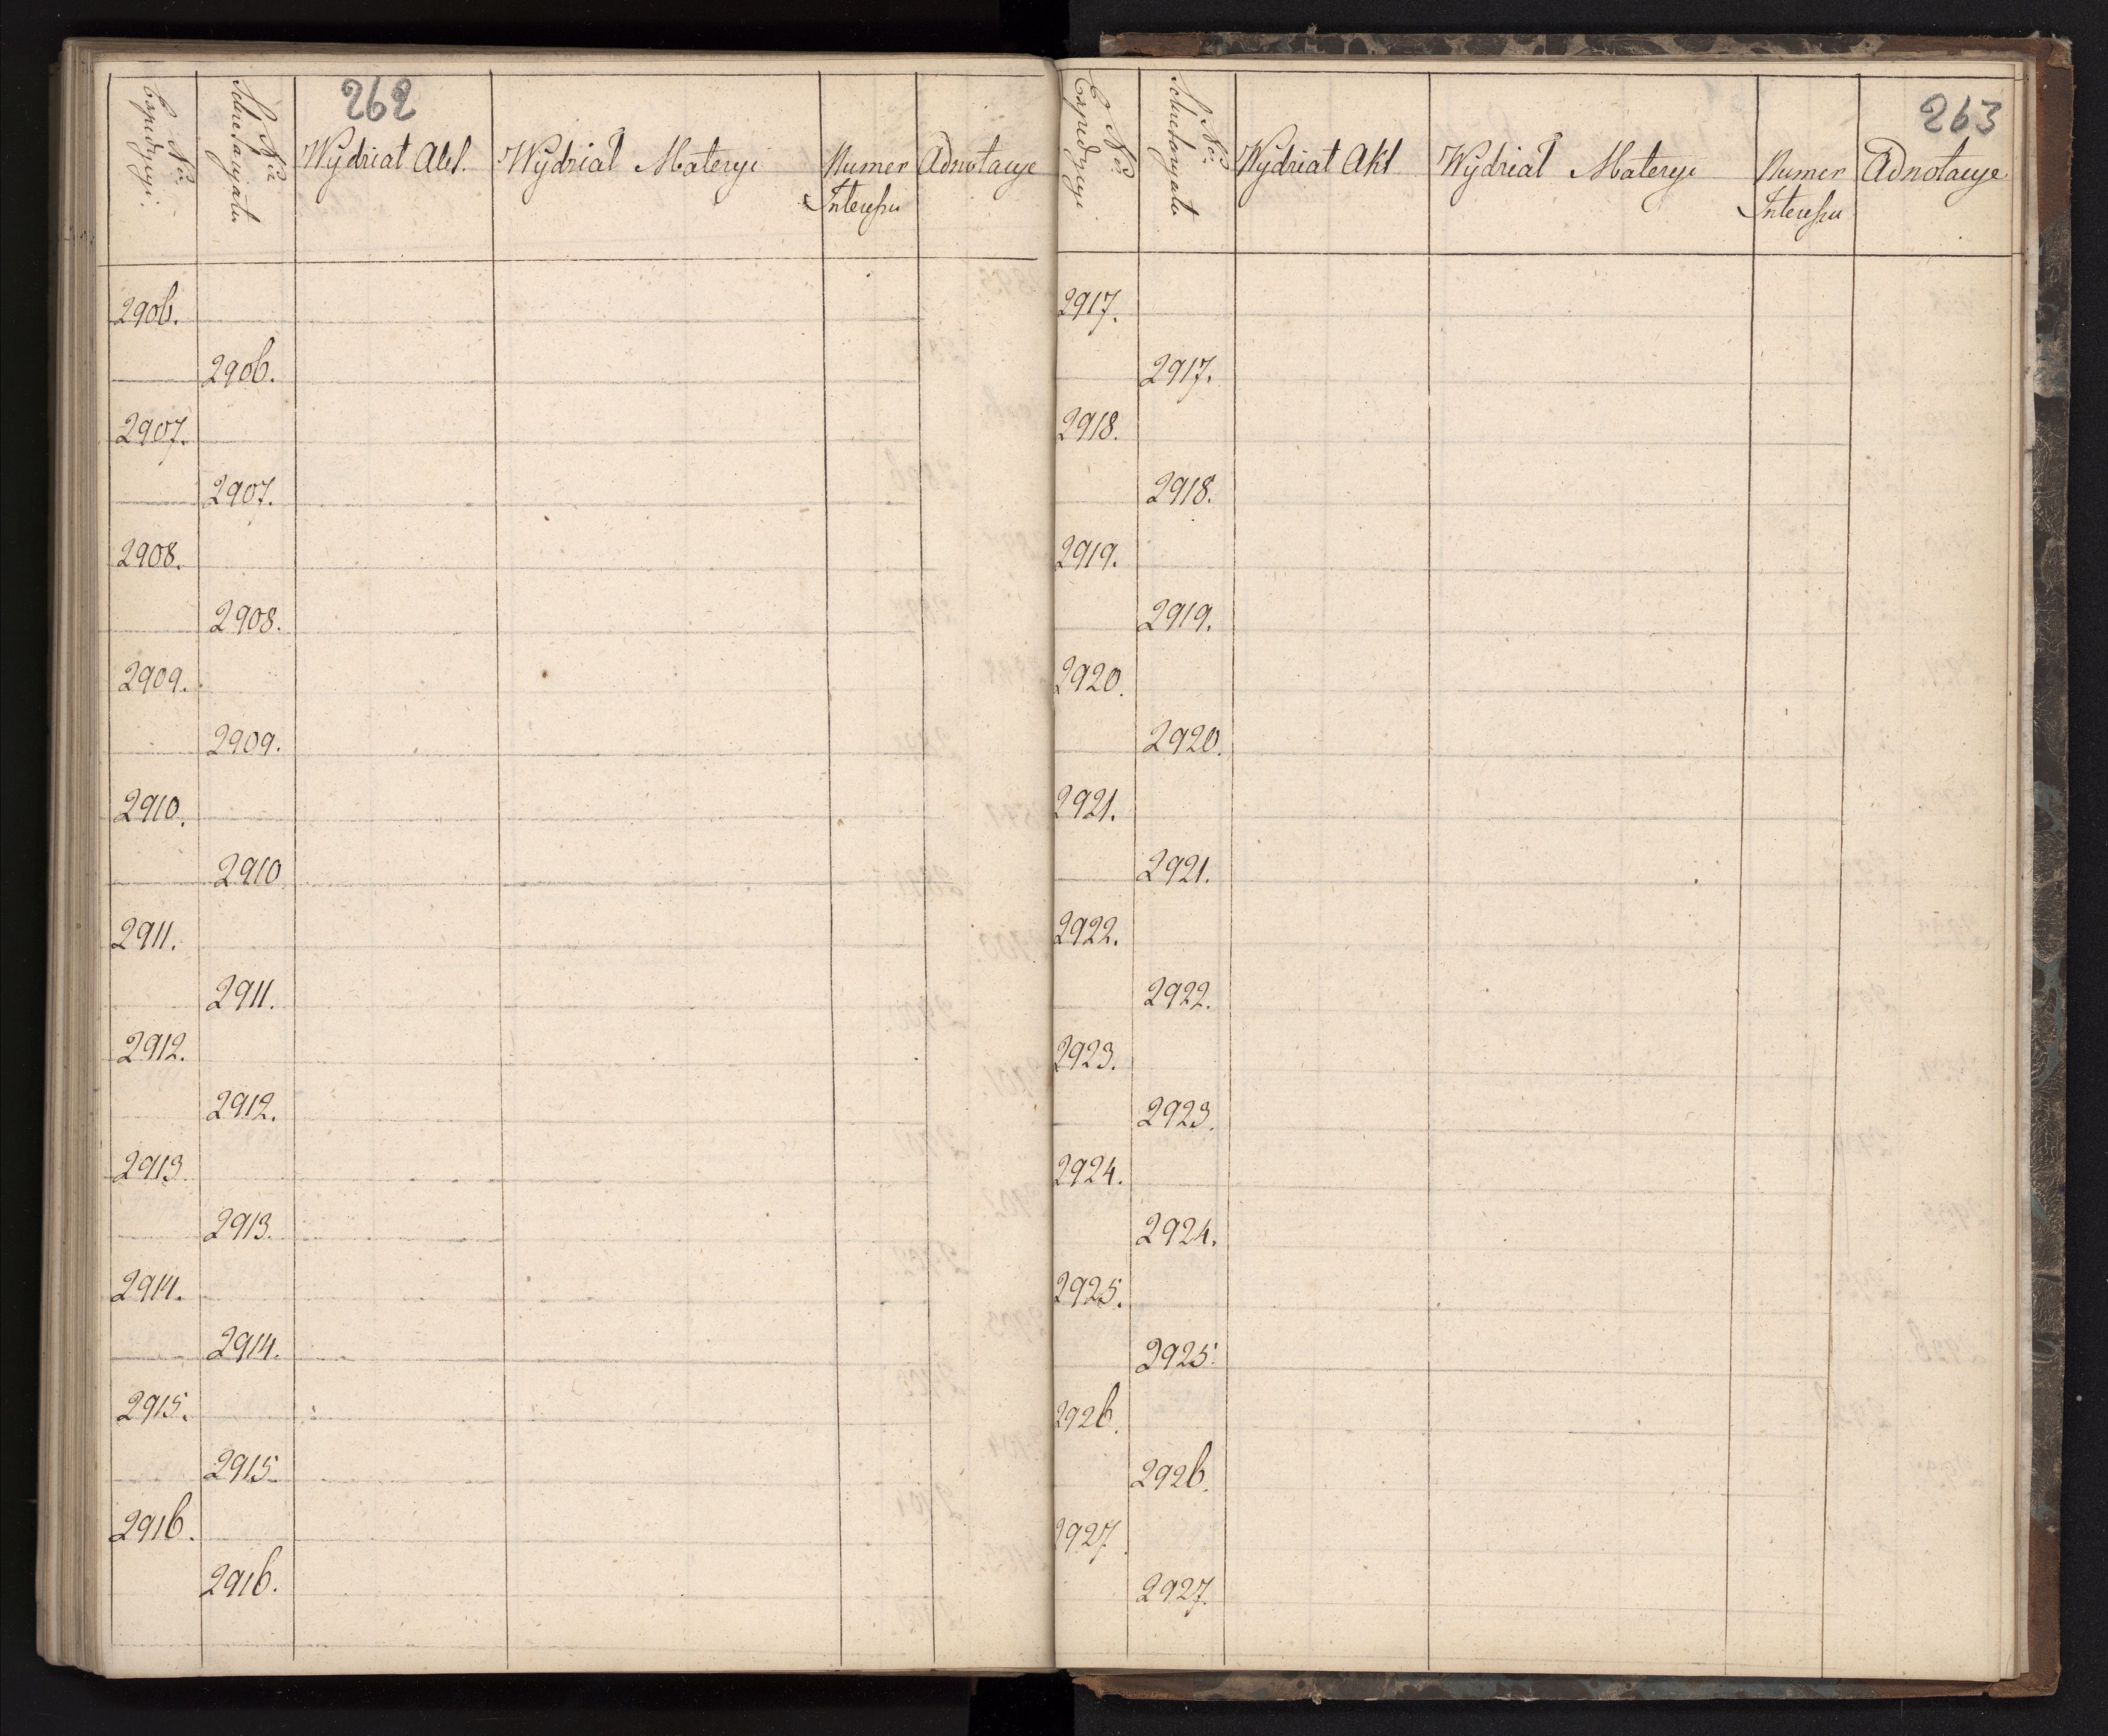 262
No Expedycyi
No Sekretaryatu
Wydział Akt.
Wydział Materyi
Numer Interessu
Adnotacye
2906.
2906.
2907.
2907.
2908.
2908.
2909.
2909.
2910.
2910
2911.
2911.
2912.
2912.
2913
2913.
2914.
2914.
2915.
2915
2916.
2916.
263
No Expedycyi
No Sekretaryatu
Wydział Akt
Wydział Materyi
Numer Interessu
Adnotacye
2917.
2917.
2918.
2918.
2919.
2919.
2920.
2920.
2921.
2921.
2922.
2922.
2923.
2923.
2924.
2924.
2925.
2925.
2926.
2926.
2927.
2927.